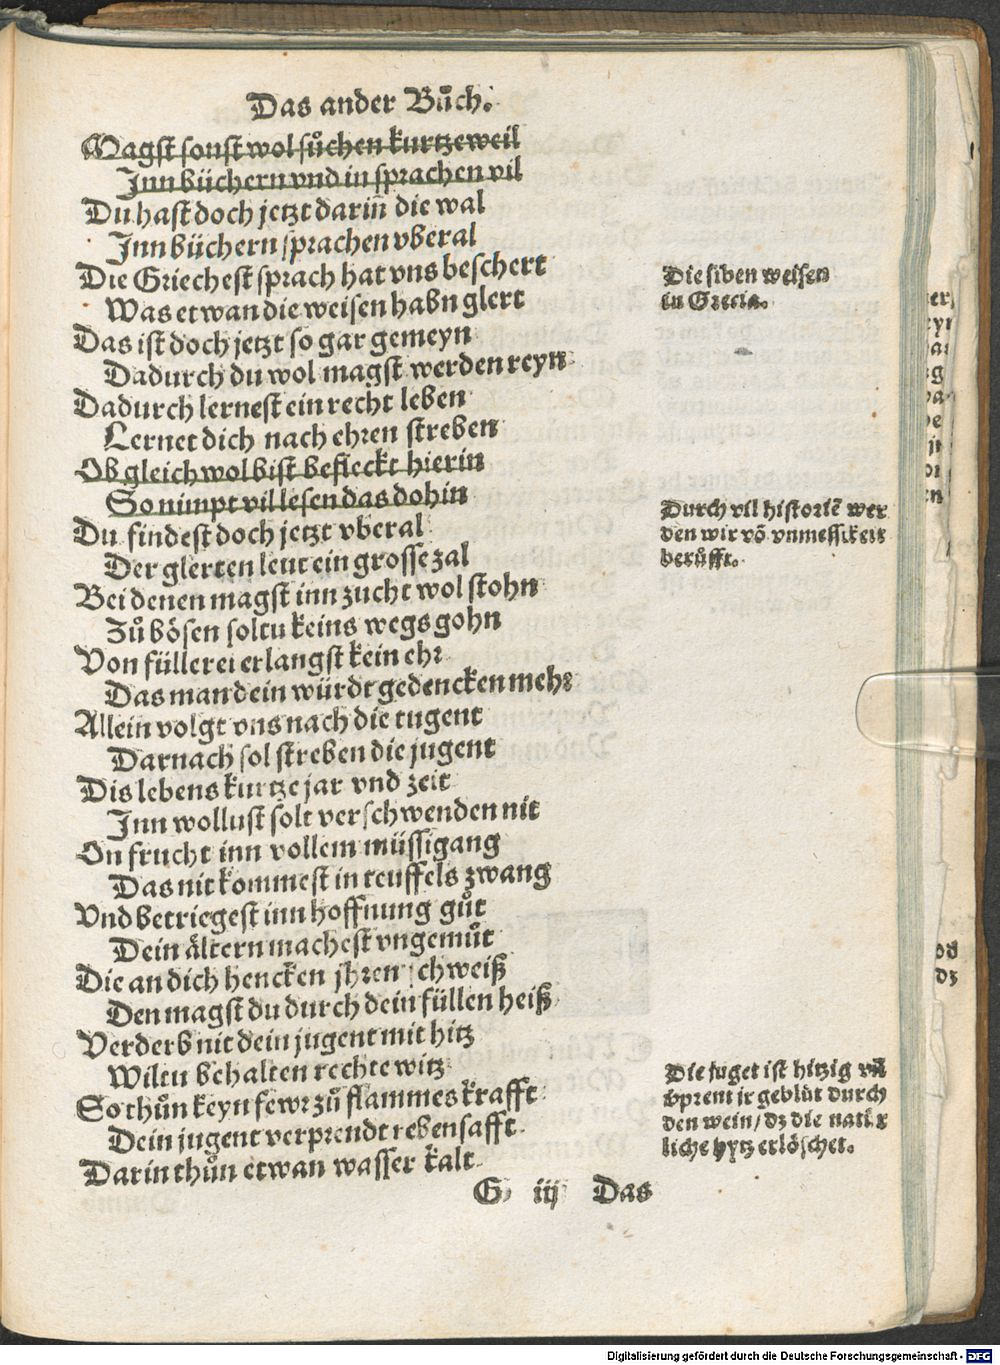 Das ander Bůch.
Magst sonst wol sůchen kurtzeweil
Inn büchern vnd in sprachen vil
Du hast doch jetzt darin̄ die wal
Inn büchern sprachen vberal
Die Griechest sprach hat vns beschert
Was etwan die weisen habn glert
Das ist doch jetzt so gar gemeyn
Dadurch du wol magst werden reyn
Dadurch lernest ein recht leben
Lernet dich nach ehren streben
Ob gleich wol bist befleckt hierin
So nimpt vil lesen das dohin
Du findest doch jetzt vberal
Der glerten leut ein grosse zal
Bei denen magst inn zucht wol stohn
Zů bösen soltu keins wegs gohn
Von füllerei erlangst kein ehr
Das man dein würdt gedencken mehr
Allein volgt vns nach die tugent
Darnach sol streben die jugent
Dis lebens kurtze jar vnd zeit
Inn wollust solt verschwenden nit
On frucht inn vollem müssigang
Das nit kommest in teuffels zwang
Vnd betriegest inn hoffnung gůt
Dein ältern machest vngemůt
Die an dich hencken jhren schweiß
Den magst du durch dein füllen heiß
Verderb nit dein jugent mit hitz
Wiltu behalten rechte witz
So thůn keyn fewr zů flammes krafft
Dein jugent verprendt rebensafft
Darin thůn etwan wasser kalt
G iij Das
Die siben weisen
in Grecia.
Durch vil historiē wer
den wir võ vnmessikeit
berüfft.
Die juget ist hitzig vn̄
vprent jr geblüt durch
den wein/ dz die natür
liche hytz erlöschet.
er
od
dz
Digitalisierung gefördert durch die Deutsche Forschungsgemeinschaft - DFG